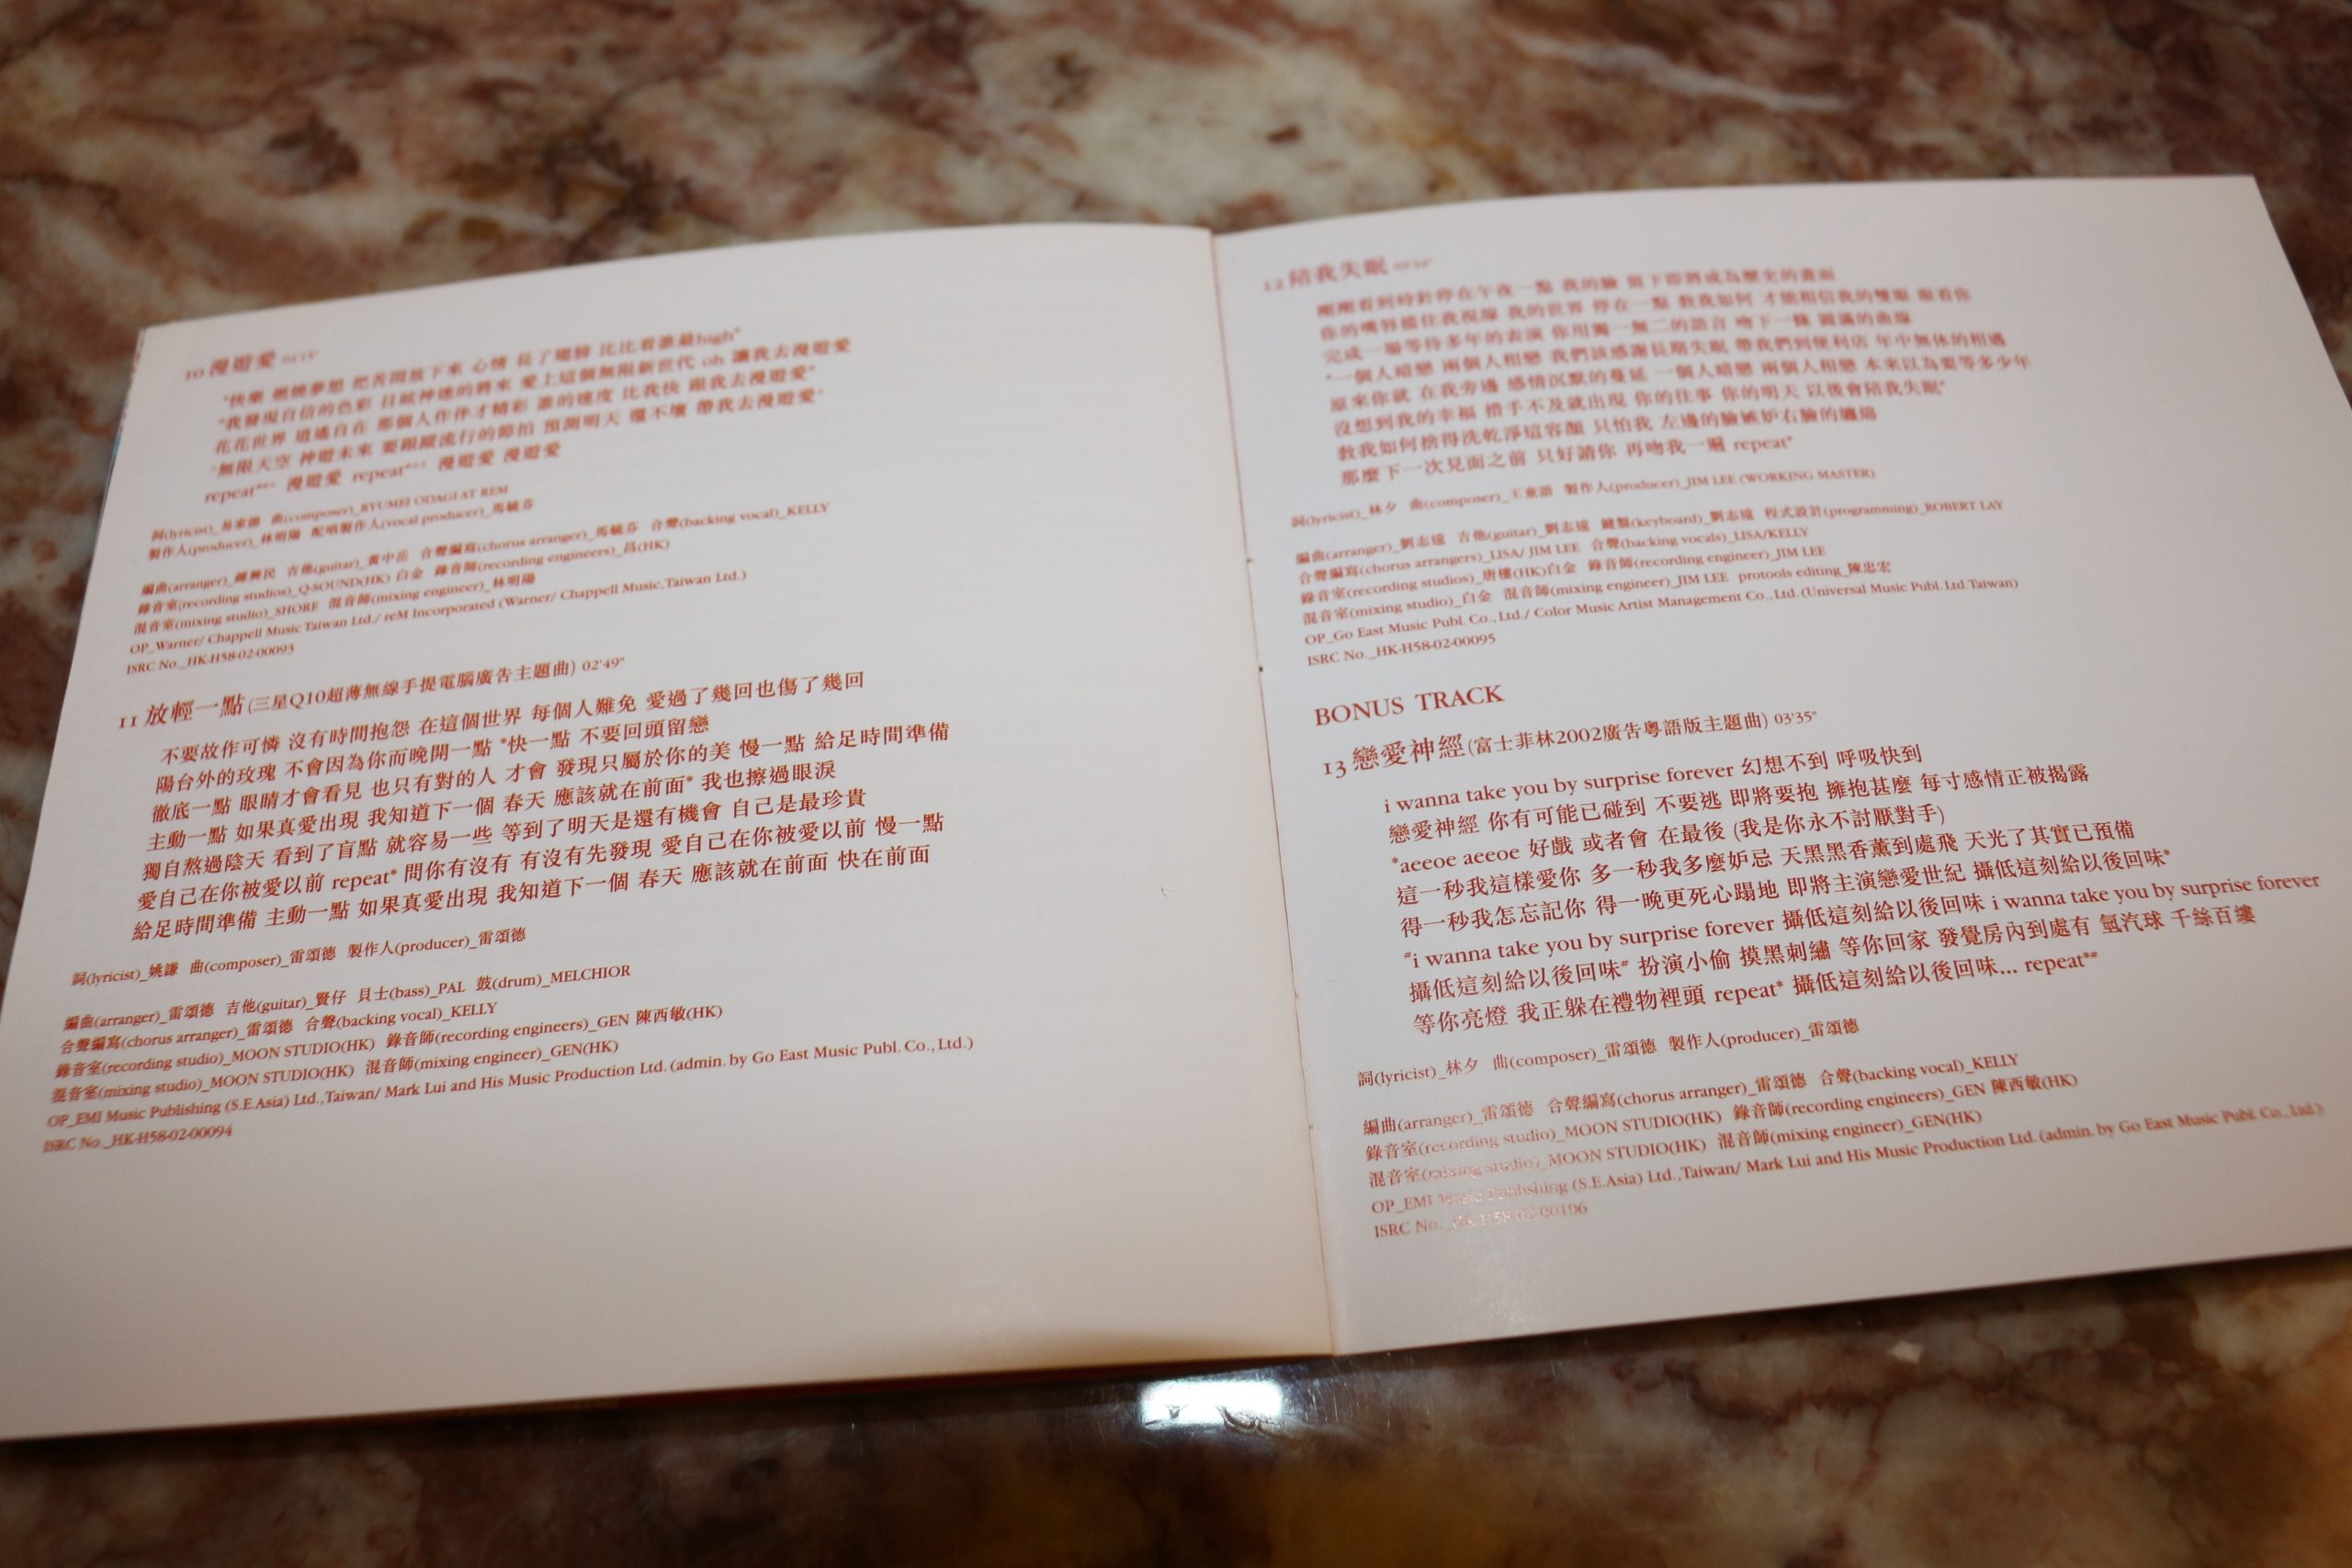 10 漫遊愛
*快樂 燃燒夢想 把苦悶放下來 心情 長了翅膀 比比看誰最high*
*我發現自信的色彩 目眩神迷的將來 愛上這個無限新世代 oh 讓我去漫遊愛
花花世界 逍遙自在 那個人作伴才精彩 誰的速度 比我快 跟我去漫遊愛
無限天空 神遊未來 要跟蹤流行的節拍 預測明天 還不壞 帶我去漫遊愛
漫遊愛 repeat 漫遊愛 漫遊愛
詞(lyricist)_易家揚 曲(composer)_RYUMEI ODAGI AT REM
製作人(producer)_林明陽 配唱製作人(vocal producer)_馬毓芬
編曲(arranger)_鍾興民 吉他(guitar)_黃中岳 合聲編寫(chorus arranger)_馬毓芬 合聲(backing vocal)_KELLY
錄音室(recording studios)_Q-SOUND(HK) 白金 錄音師(recording engineers)_昌(HK)
混音室(mixing studio)_SHORE 混音師(mixing engineer)_林明陽
OP_Warner/ Chappell Music Taiwan Ltd./ reM Incorporated (Warner/ Chappell Music, Taiwan Ltd.)
ISRC No._HK-H58-02-00093
11 放輕一點 (三星Q10超薄無線手提電腦廣告主題曲) 02'49"
不要故作可憐 沒有時間抱怨 在這個世界 每個人難免 愛過了幾回也傷了幾回
陽台外的玫瑰 不會因為你而晚開一點 *快一點 不要回頭留戀
徹底一點 眼睛才會看見 也只有對的人 才會 發現只屬於你的美 慢一點 給足時間準備
主動一點 如果真愛出現 我知道下一個 春天 應該就在前面* 我也擦過眼淚
獨自熬過陰天 看到了盲點 就容易一些 等到了明天是還有機會 自己是最珍貴
愛自己在你被愛以前 repeat* 問你有沒有 有沒有先發現 愛自己在你被愛以前 慢一點
給足時間準備 主動一點 如果真愛出現 我知道下一個 春天 應該就在前面 快在前面
詞(lyricist)_姚謙 曲(composer)_雷頌德 製作人(producer)_雷頌德
編曲(arranger)_雷頌德 吉他(guitar)_賢仔 貝士(bass)_PAL 鼓(drum)_MELCHIOR
合聲編寫(chorus arranger)_雷頌德 合聲(backing vocal)_KELLY
錄音室(recording studio)_MOON STUDIO(HK) 錄音師(recording engineers)_GEN 陳西敏(HK)
混音室(mixing studio)_MOON STUDIO(HK) 混音師(mixing engineer)_GEN(HK)
OP_EMI Music Publishing (S.E.Asia) Ltd.,Taiwan/ Mark Lui and His Music Production Ltd. (admin. by Go East Music Publ. Co., Ltd.)
ISRC No._HK-H58-02-00094
12 陪我失眠
剛剛看到時針停在午夜一點 我的臉 留下即將成為歷史的畫面
你的嘴唇擋住我視線 我的世界 停在一點 教我如何 才能相信我的雙眼 眼看你
完成一場等待多年的表演 你用獨一無二的語言 吻下一條 圓滿的曲線
*一個人暗戀 兩個人相戀 我們該感謝長期失眠 帶我們到便利店 年中無休的相遇
原來你就 在我旁邊 感情沉默的蔓延 一個人暗戀 兩個人相戀 本來以為要等多少年
沒想到我的幸福 措手不及就出現 你的往事 你的明天 以後會陪我失眠*
教我如何捨得洗乾淨這容顏 只怕我 左邊的臉嫉妒右臉的纏綿
那麼下一次見面之前 只好請你 再吻我一遍 repeat*
詞(lyricist)_林夕 曲(composer)_王童語 製作人(producer)_JIM LEE (WORKING MASTER)
編曲(arranger)_劉志遠 吉他(guitar)_劉志遠 鍵盤(keyboard)_劉志遠 程式設計(programming)_ROBERT LAY
合聲編寫(chorus arrangers)_LISA/ JIM LEE 合聲(backing vocals)_LISA/KELLY
錄音室(recording studios)_唐樓(HK)白金 錄音師(recording engineer)_JIM LEE
混音室(mixing studio)_白金 混音師(mixing engineer)_JIM LEE protools editing_陳忠宏
OP_Go East Music Publ. Co., Ltd./ Color Music Artist Management Co., Ltd. (Universal Music Publ. Ltd. Taiwan)
ISRC No._HK-H58-02-00095
BONUS TRACK
13 戀愛神經 (富士菲林2002廣告粵語版主題曲) 03'35"
i wanna take you by surprise forever 幻想不到 呼吸快到
戀愛神經 你有可能已碰到 不要逃 即將要抱 擁抱甚麼 每寸感情正被揭露
*aeeoe aeeoe 好戲 或者會 在最後 (我是你永不討厭對手)
這一秒我這樣愛你 多一秒我多麼妒忌 天黑黑香薰到處飛 天光了其實已預備
得一秒我怎忘記你 得一晚更死心蹋地 即將主演戀愛世紀 攝低這刻給以後回味*
#i wanna take you by surprise forever 攝低這刻給以後回味 i wanna take you by surprise forever
攝低這刻給以後回味# 扮演小偷 摸黑刺繡 等你回家 發覺房內到處有 氫汽球 千絲百縷
等你亮燈 我正躲在禮物裡頭 repeat* 攝低這刻給以後回味... repeat*#
詞(lyricist)_林夕 曲(composer)_雷頌德 製作人(producer)_雷頌德
編曲(arranger)_雷頌德 合聲編寫(chorus arranger)_雷頌德 合聲(backing vocal)_KELLY
錄音室(recording studio)_MOON STUDIO(HK) 錄音師(recording engineers)_GEN 陳西敏(HK)
混音室(mixing studio)_MOON STUDIO(HK) 混音師(mixing engineer)_GEN(HK)
OP_EMI Music Publishing (S.E.Asia) Ltd.,Taiwan/ Mark Lui and His Music Production Ltd. (admin. by Go East Music Publ. Co., Ltd.)
ISRC No._HK-H58-02-00106